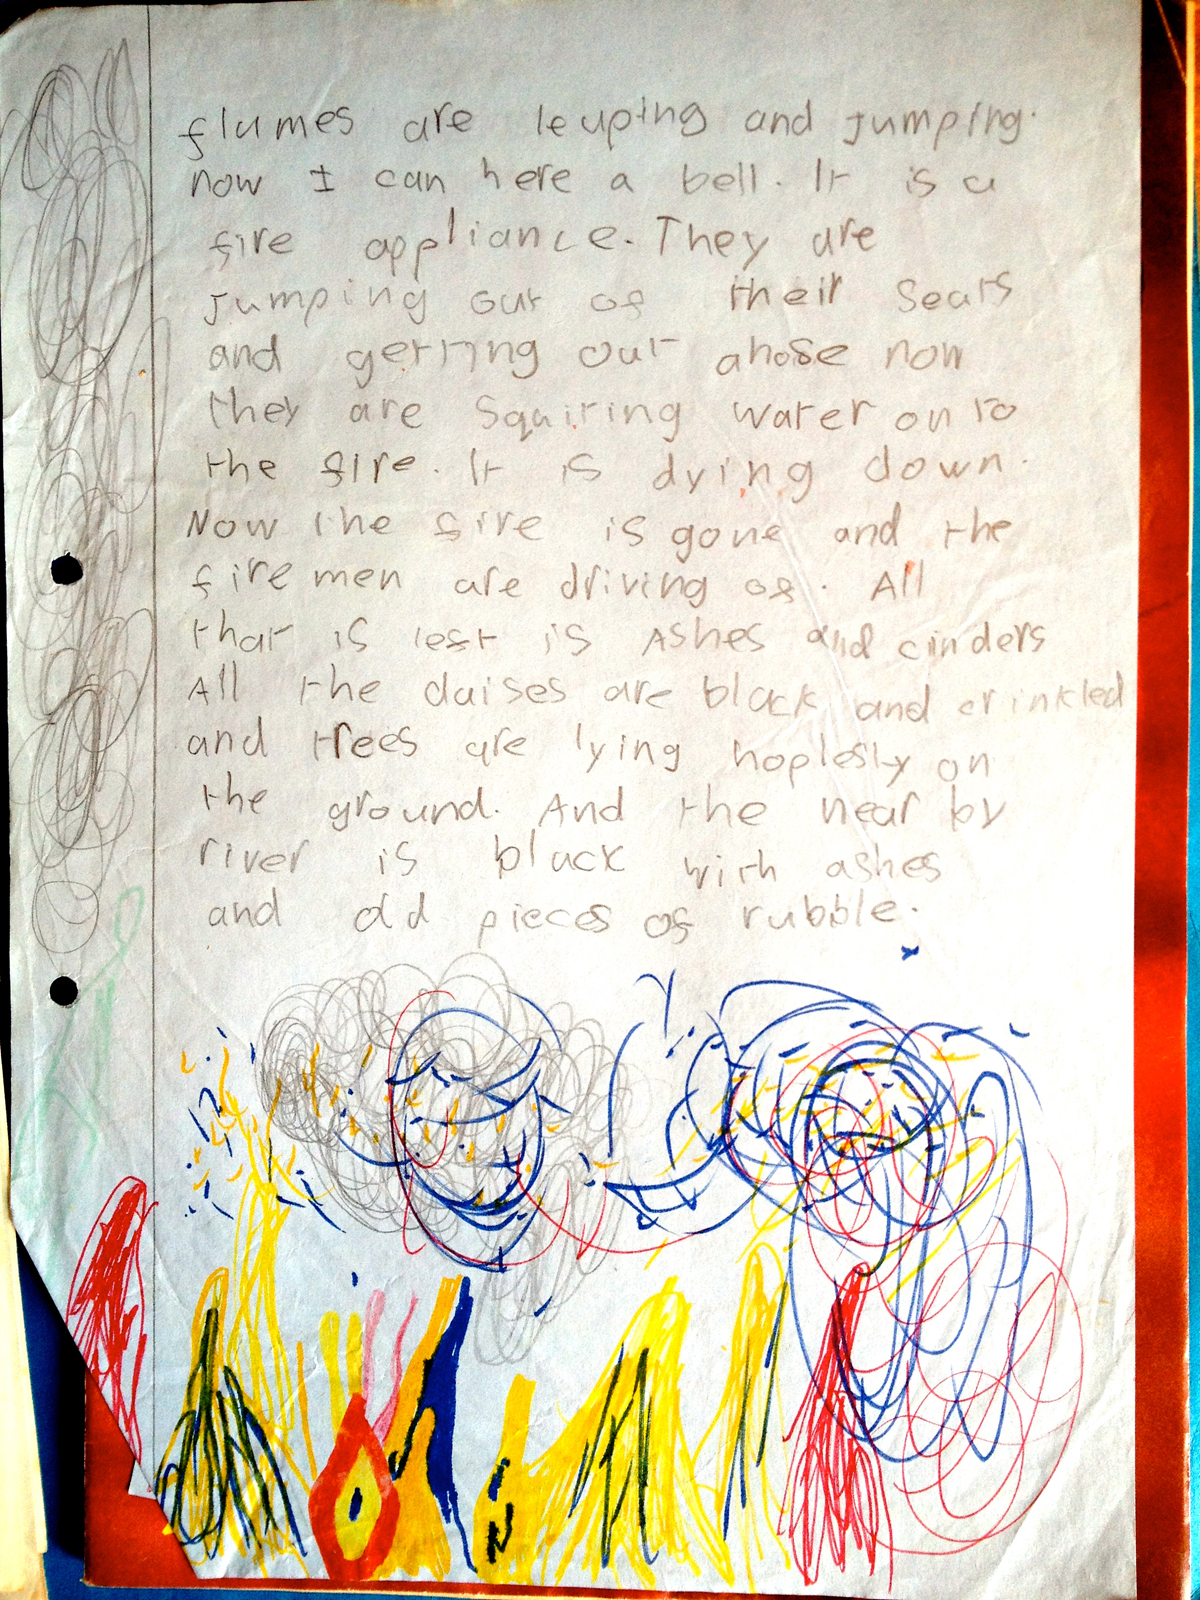 flumes are leuping and jumping.
now I can here a bell. It is a
fire appliance. They are
jumping out of their seats
and getting out ahose now
they are squiring water on to
the fire. It is dying down.
Now the fire is gone and the
fire men are driving of. All
that is left is Ashes and cinders
All the daises are black and crinkled
and trees are lying hoplesly on
the ground. And the near by
river is black with ashes
and old pieces of rubble.